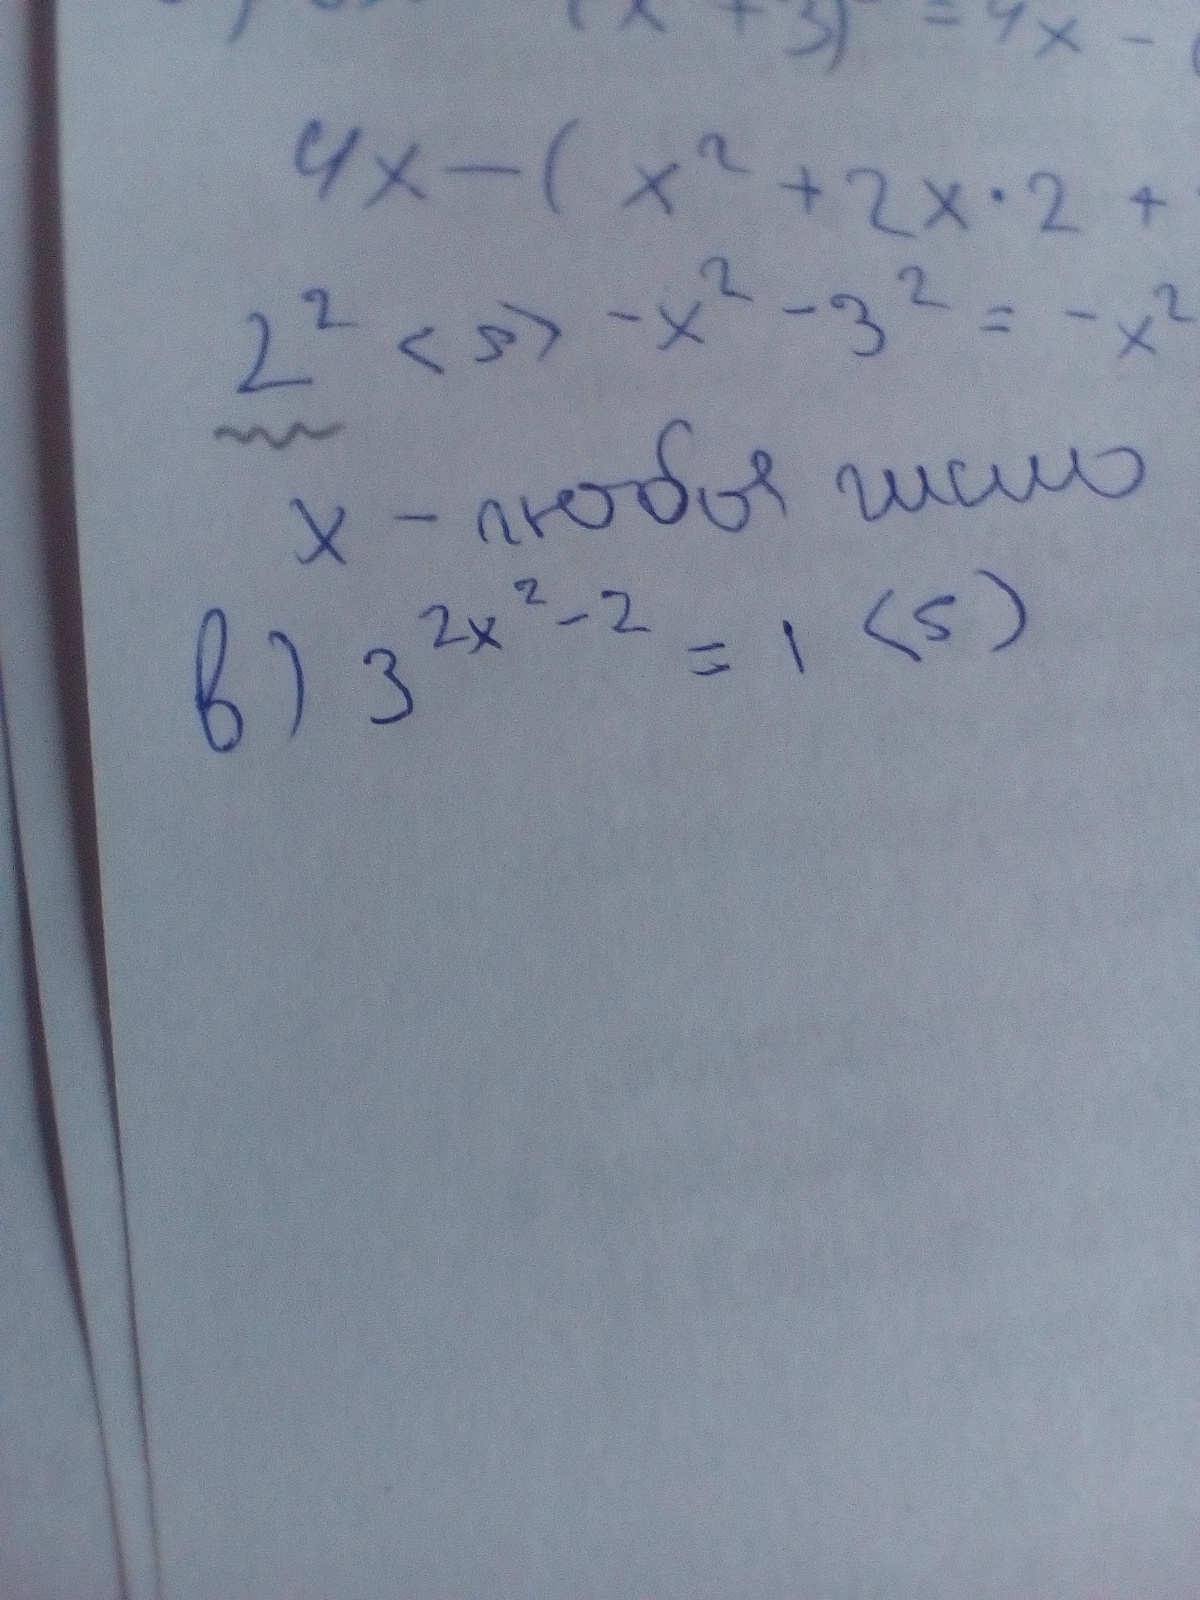 (x + 3) = 4x - (
4x - ( x² + 2x · 2 +
2² <s> -x² - 3² = -x²
x - любоя число
в) 3^{2x² - 2} = 1 <s>